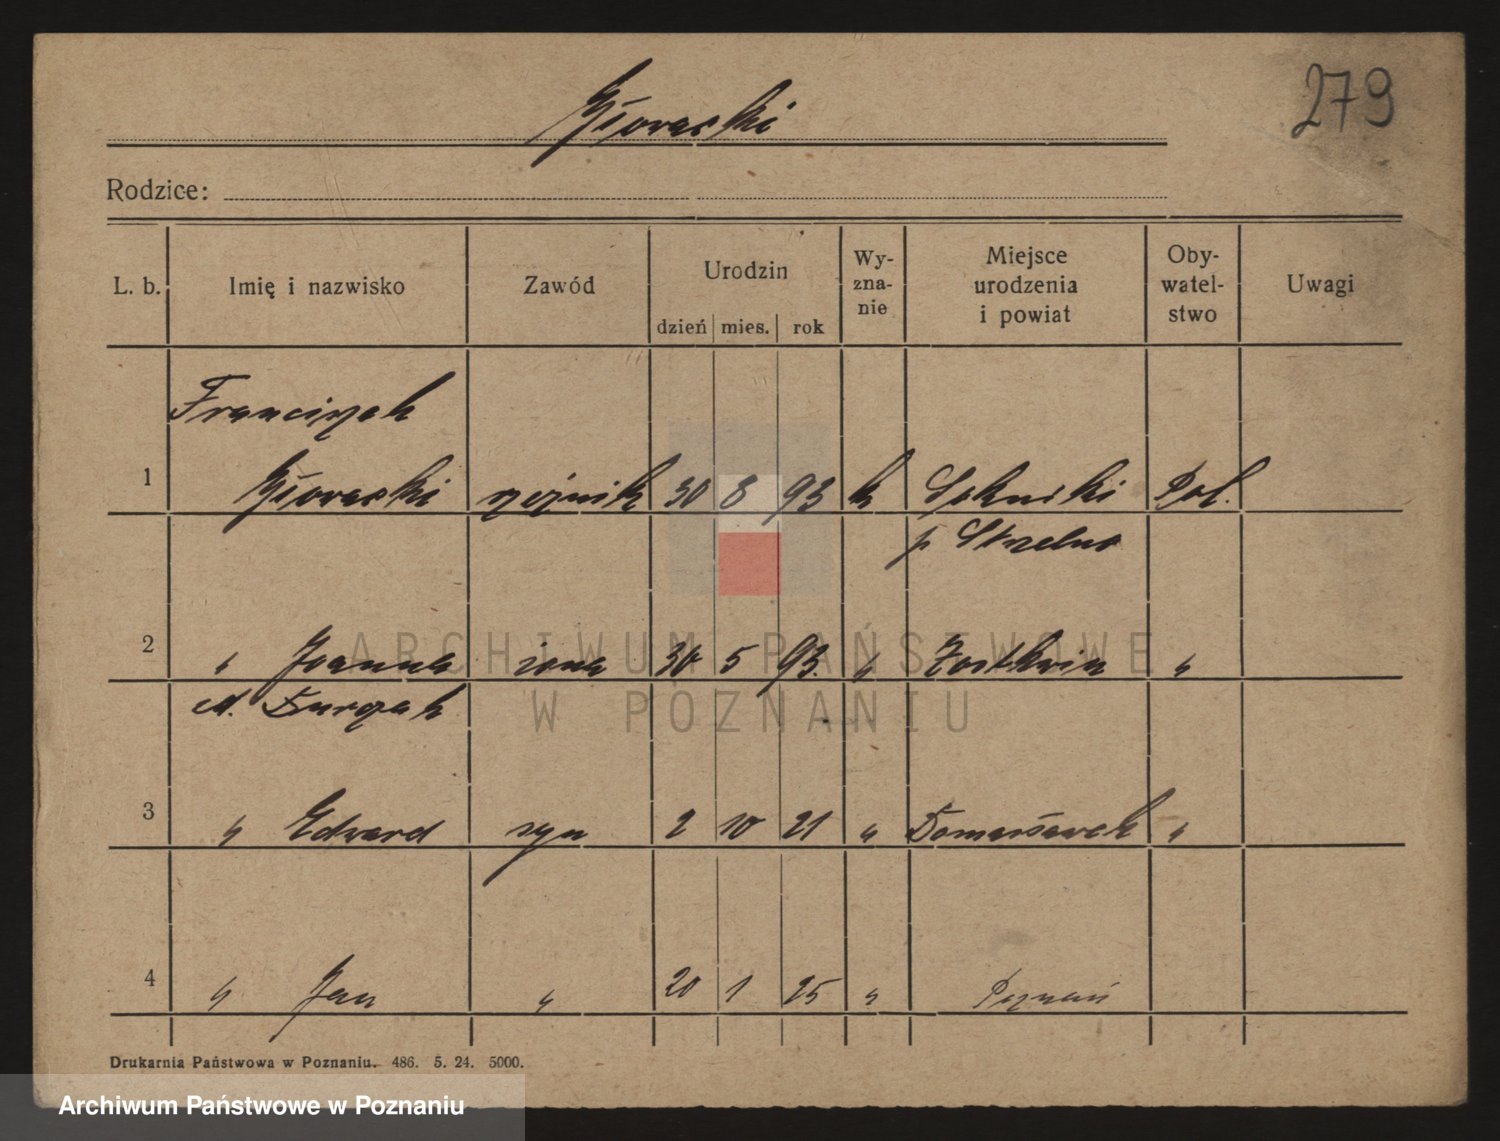 279
Rodzice:
L. b. Imię i nazwisko Zawód Urodzin dzień mies. rok Wy-zna-nie Miejsce urodzenia i powiat Oby-watel-stwo Uwagi
Franciszek
1 30 8 93 k Pol.
p Strzelno
2 " Joanna żona 30 5 93. " "
3 " Edward syn 2 10 21 " "
4 " Jan " 20 1 25 " Poznań
Drukarnia Państwowa w Poznaniu. 486. 5. 24. 5000.
ARCHIWUM PAŃSTWOWE
W POZNANIU
Archiwum Państwowe w Poznaniu